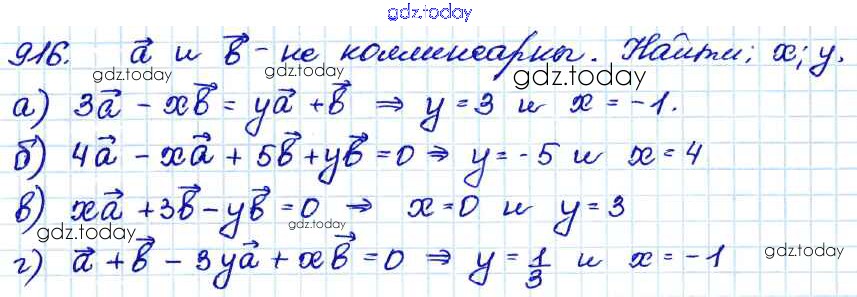 gdz.today
916. a⃗ и b⃗ - не коллинеарны. Найти: x; y.
gdz.today gdz.today gdz.today
а) 3a⃗ - xb⃗ = ya⃗ + b⃗ ⇒ y = 3 и x = -1.
б) 4a⃗ - xa⃗ + 5b⃗ + yb⃗ = 0 ⇒ y = -5 и x = 4
в) xa⃗ + 3b⃗ - yb⃗ = 0 ⇒ x = 0 и y = 3
gdz.today gdz.today
г) a⃗ + b⃗ - 3ya⃗ + xb⃗ = 0 ⇒ y = 1/3 и x = -1
gdz.today